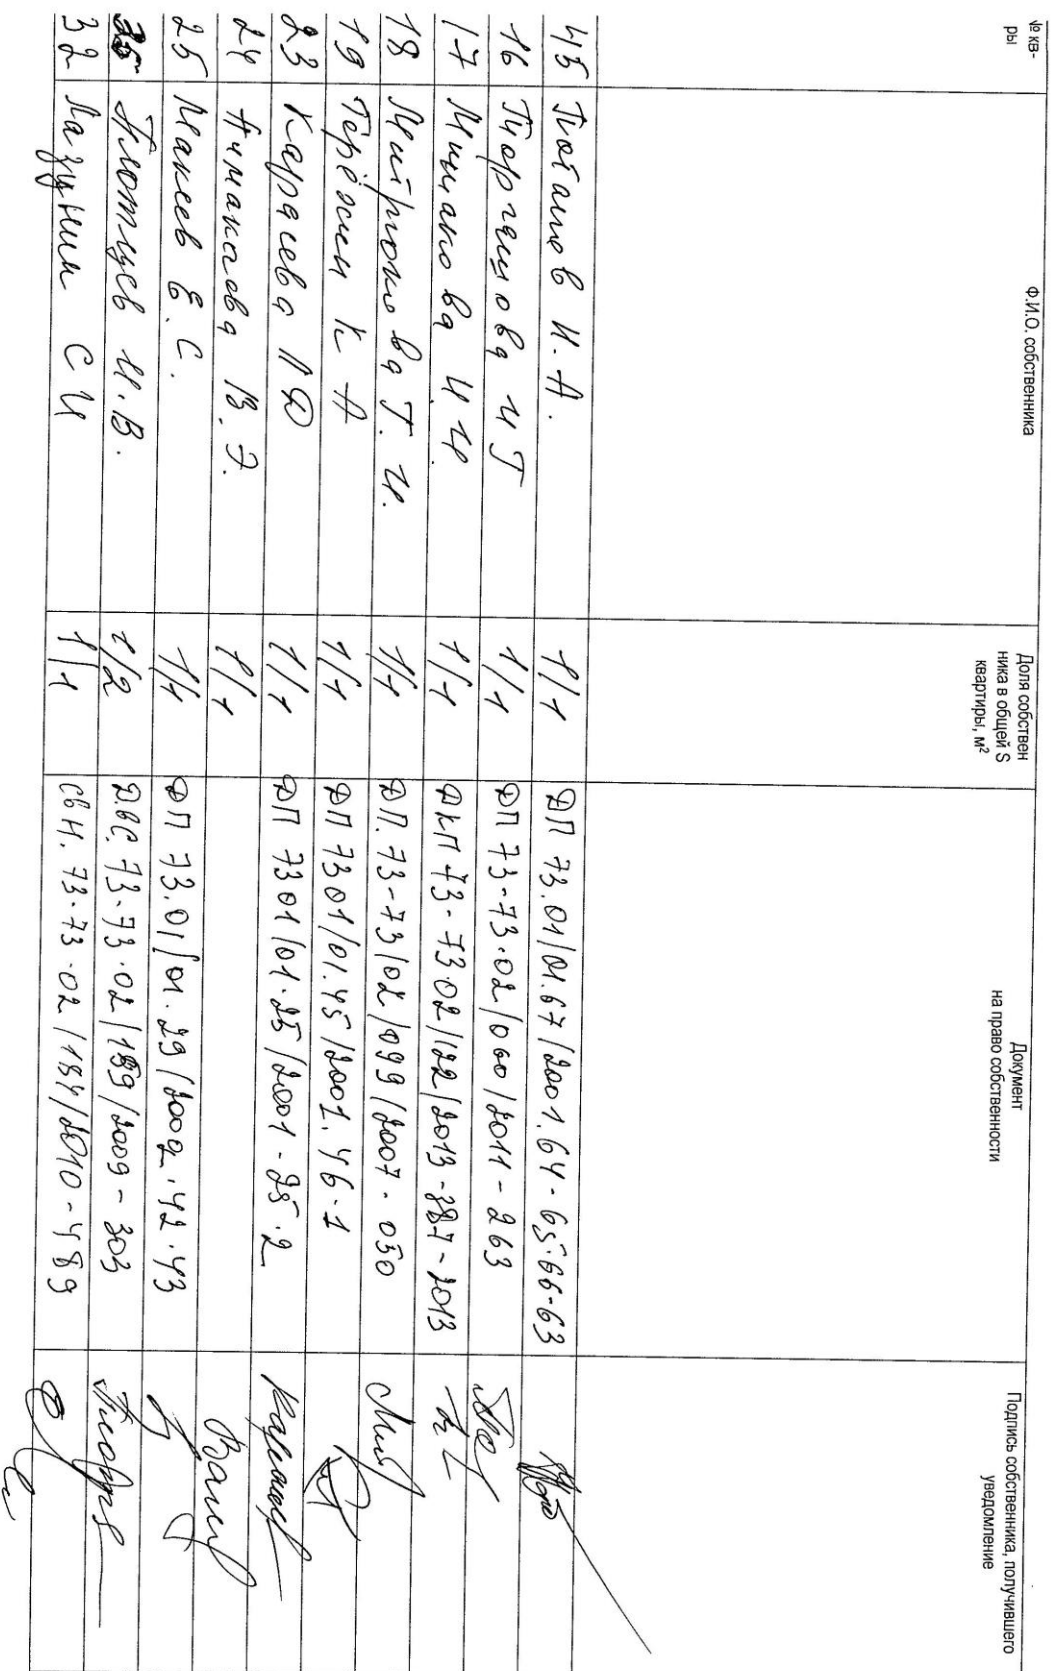 № кв-ры Ф.И.О. собственника Доля собствен ника в общей S квартиры, м² Документ на право собственности Подпись собственника, получившего уведомление
45 Потапов И.А. 1/1 ДП 73.01/01.67/2001.64-65.66-63
16 И Т 1/1 ДП 73-73.02/060/2011-263
17 И.И. 1/1 ДКП 73-73.02/122/2013-387-2013
18 Т.И. 1/1 ДП.73-73/02/099/2007.050
19 Терёхин К А 1/1 ДП 7301/01.45/2001.46-1
23 Карасева П Ф 1/1 ДП 7301/01.25/2001-25.2
24 В.Э. 1/1
25 Макеев Е.С. 1/1 ДП 73.01/01.29/2002.42.43
Плотцев И.В. 1/2 73-73.02/189/2009-303
32 Лазунин С И 1/1 свН. 73-73-02/184/2010-489